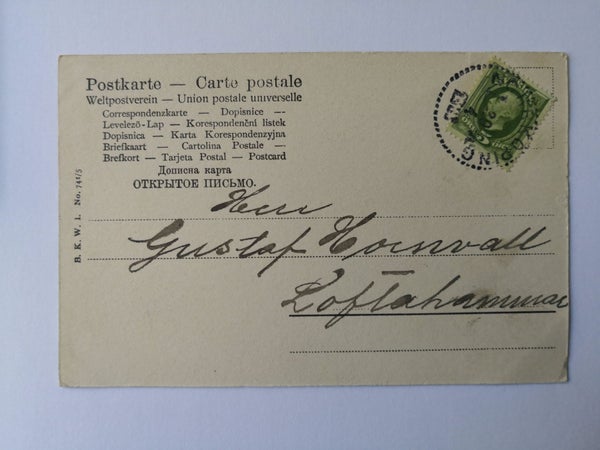 Postkarte — Carte postale
Weltpostverein — Union postale universelle
Correspondenzkarte — Dopisnice —
Levelező-Lap — Korespondenční listek
Dopisnica — Karta Korespondenzyjna
Briefkaart — Cartolina Postale —
Brefkort — Tarjeta Postal — Postcard
Дописна карта
ОТКРЫТОЕ ПИСЬМО.
B. K. W. I. No. 741/5
Herr
Gustaf Hornvall
Loftahammar